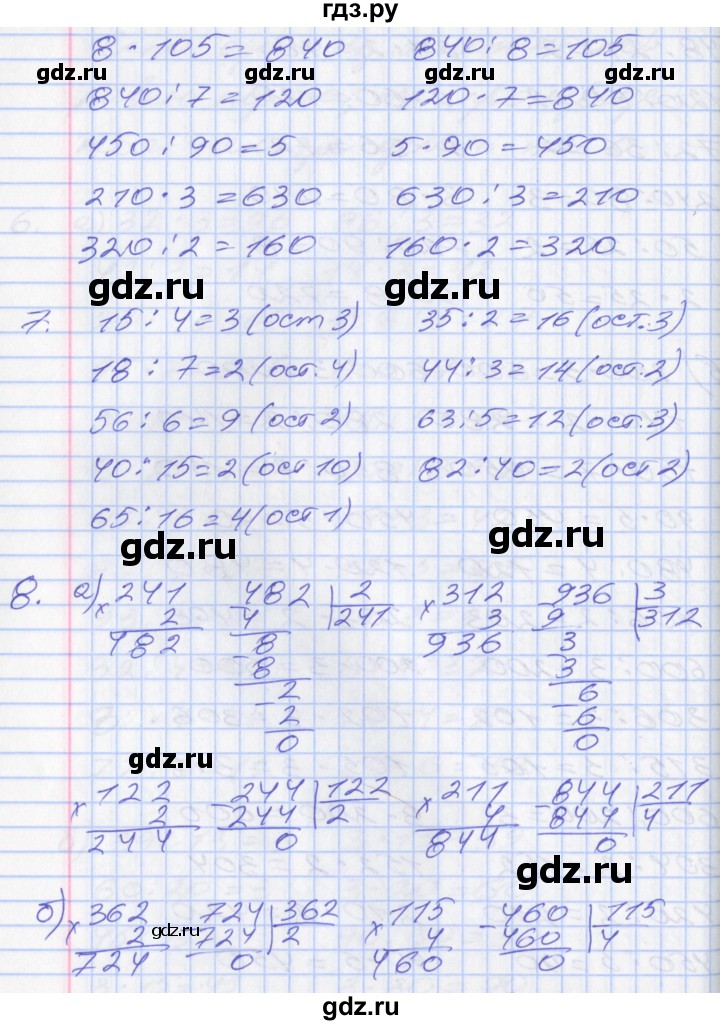 гдз.ру
8 · 105 = 840   840 : 8 = 105
gdz.ru   gdz.ru
840 : 7 = 120   120 · 7 = 840
450 : 90 = 5   5 · 90 = 450
210 · 3 = 630   630 : 3 = 210
320 : 2 = 160   160 · 2 = 320
gdz.ru   gdz.ru
7. 15 : 4 = 3 (ост 3)   35 : 2 = 16 (ост. 3)
18 : 7 = 2 (ост. 4)   44 : 3 = 14 (ост. 2)
56 : 6 = 9 (ост 2)   63 : 5 = 12 (ост. 3)
40 : 15 = 2 (ост 10)   82 : 40 = 2 (ост 2)
65 : 16 = 4 (ост 1)
gdz.ru   gdz.ru
8. а) × 241   − 482 | 2   × 312   − 936 | 3
2   4   241   3   9   312
482   − 8   936   − 3
8   3
− 2   − 6
2   6
0   0
gdz.ru
× 122   − 244 | 122   × 211   − 844 | 211
2   244   2   4   844   4
244   0   844   0
gdz.ru
б) × 362   − 724 | 362   × 115   − 460 | 115
2   gdz.ru   724   2   4   460   4
724   0   460   0
gdz.ru